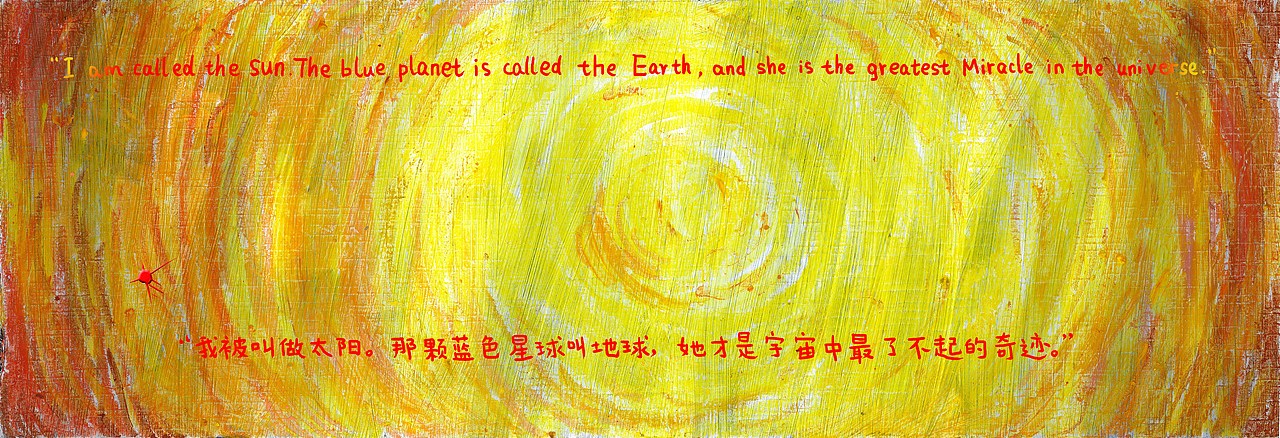 "I am called the sun. The blue planet is called the Earth, and she is the greatest Miracle in the universe."
“我被叫做太阳。那颗蓝色星球叫地球，她才是宇宙中最了不起的奇迹。”